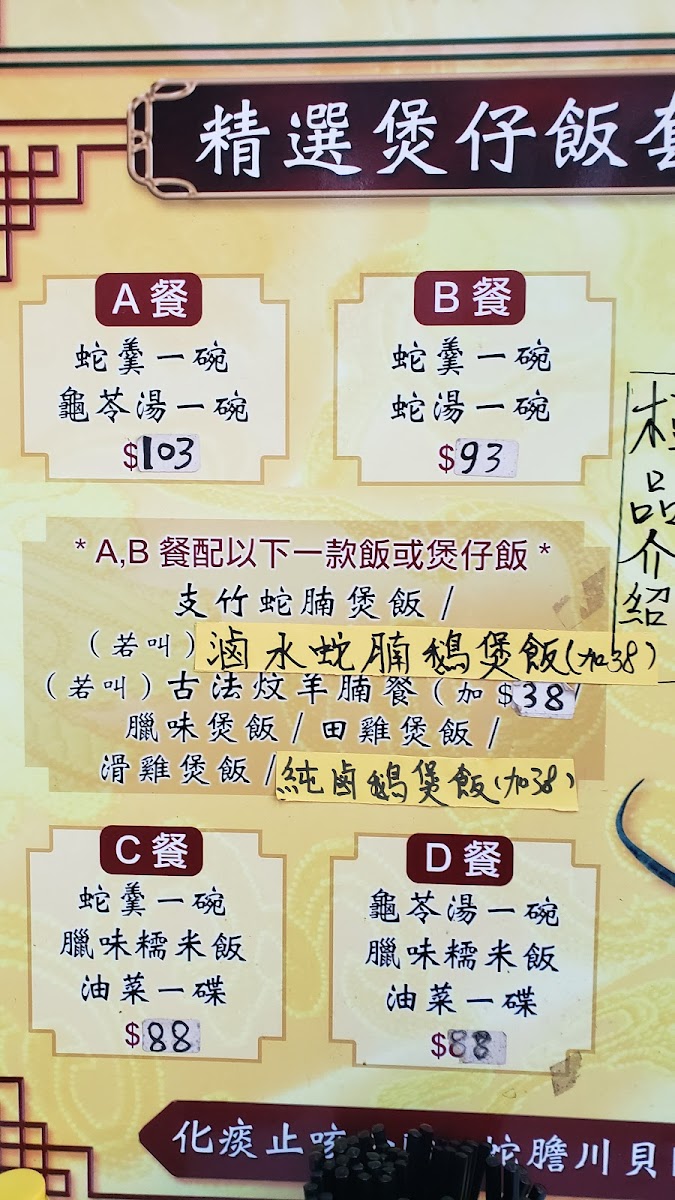 精選煲仔飯套
A餐
蛇羹一碗
龜苓湯一碗
$103
B餐
蛇羹一碗
蛇湯一碗
$93
* A,B 餐配以下一款飯或煲仔飯 *
支竹蛇腩煲飯 /
（若叫）滷水蛇腩鵝煲飯(加38)
（若叫）古法炆羊腩餐（加 $38/
臘味煲飯 / 田雞煲飯 /
滑雞煲飯 / 純鹵鵝煲飯(加38)
C餐
蛇羹一碗
臘味糯米飯
油菜一碟
$88
D餐
龜苓湯一碗
臘味糯米飯
油菜一碟
$88
品介紹
化痰止咳
蛇膽川貝